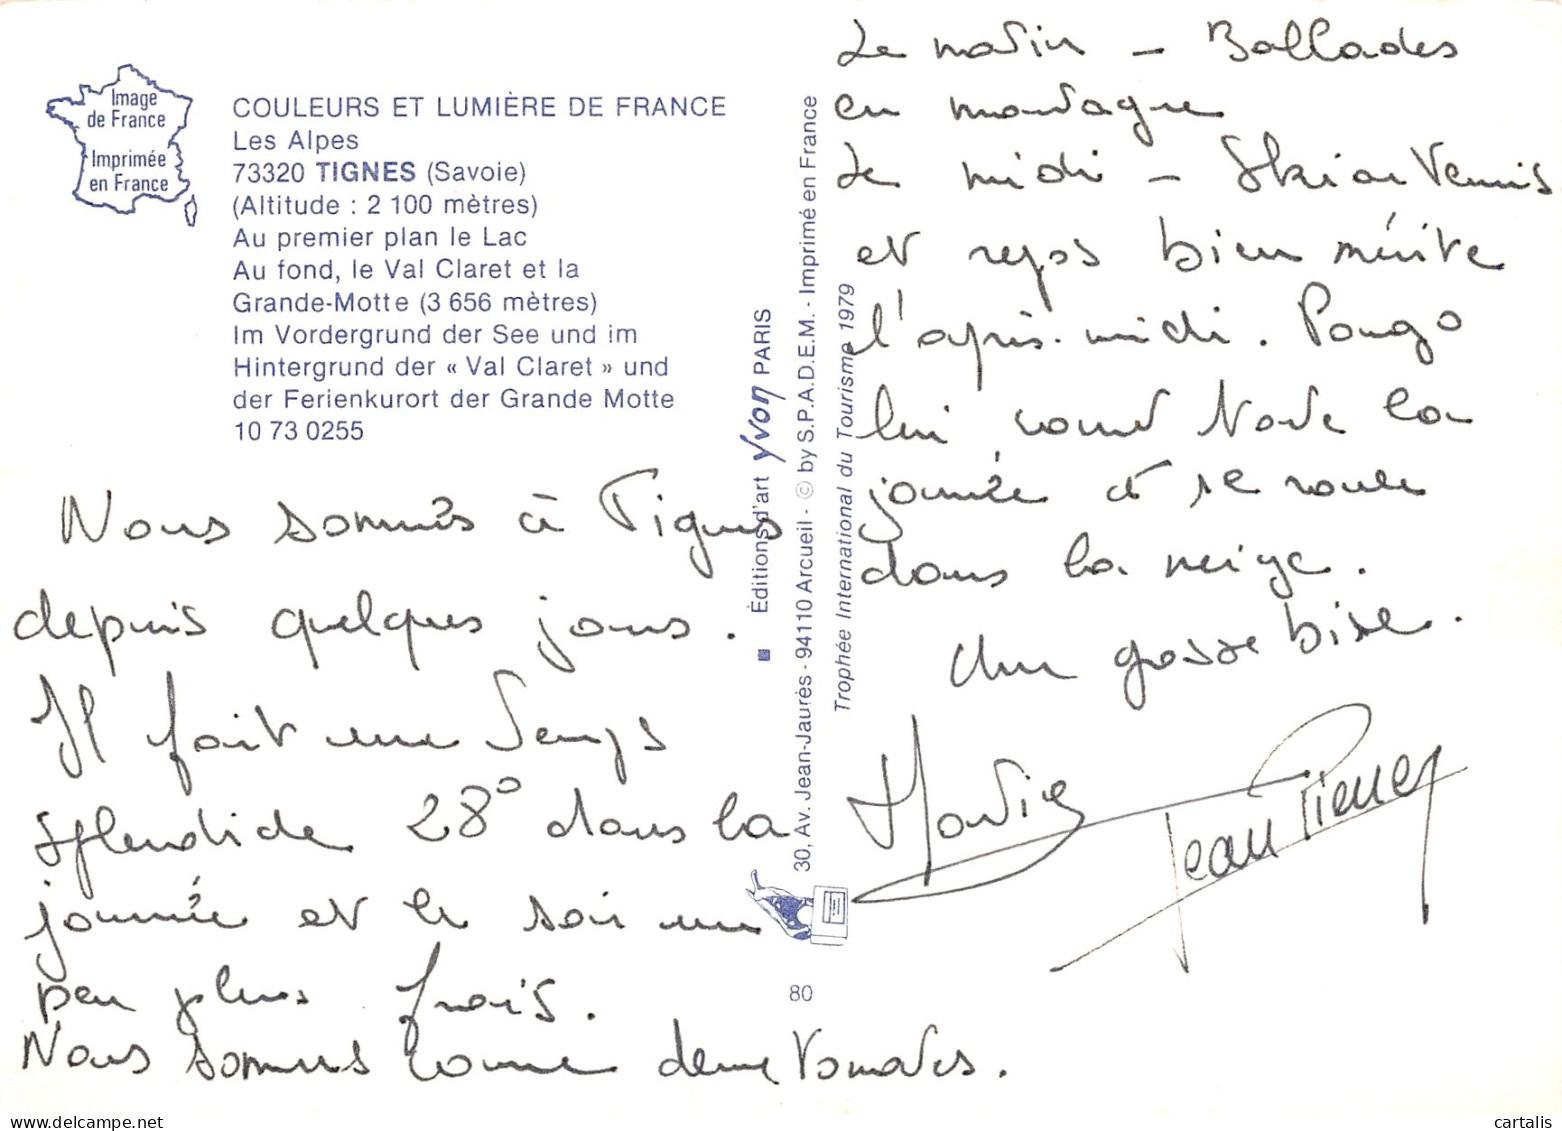 Image
de France
Imprimée
en France
COULEURS ET LUMIÈRE DE FRANCE
Les Alpes
73320 TIGNES (Savoie)
(Altitude : 2 100 mètres)
Au premier plan le Lac
Au fond, le Val Claret et la
Grande-Motte (3 656 mètres)
Im Vordergrund der See und im
Hintergrund der « Val Claret » und
der Ferienkurort der Grande Motte
10 73 0255
Nous sommes à Tignes
depuis quelques jours.
Il fait un temps
splendide 28° dans la
journée et le soir un
peu plus frais.
Nous sommes comme deux tomates.
Éditions d'art Yvon PARIS
30, Av. Jean-Jaurès - 94110 Arcueil - © by S.P.A.D.E.M. - Imprimé en France
Trophée International du Tourisme 1979
80
Le matin - Ballades
en montagne
Le midi - Ski ou Tennis
et repos bien mérite
l'après-midi. Pongo
lui court toute la
journée et se roule
dans la neige.
Une grosse bise.
Jean Pierre